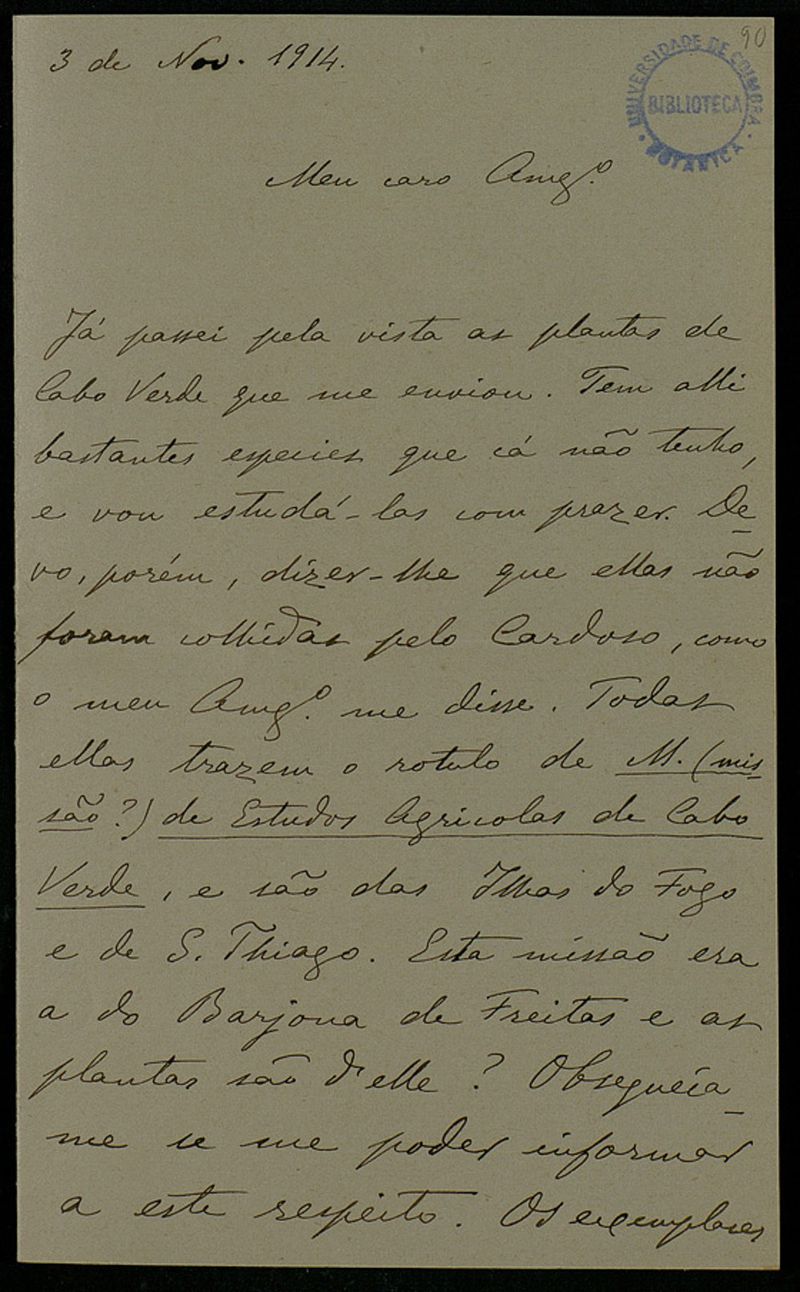 90
UNIVERSIDADE DE COIMBRA
BIBLIOTECA
BOTANICA
3 de Nov. 1914.
Meu caro Amg.º
Já passei pela vista as plantas de
Cabo Verde que me enviou. Tem alli
bastantes especies que cá não tenho,
e vou estudá-las com prazer. De-
vo, porém, dizer-lhe que ellas não
foram colhidas pelo Cardoso, como
o meu Amg.º me disse. Todas
ellas trazem o rotulo de M. (mis-
são?) de Estudos Agricolas de Cabo
Verde, e são das Ilhas do Fogo
e de S. Thiago. Esta missão era
a do Barjona de Freitas e as
plantas são d'elle? Obsequeia-
me se me poder informar
a este respeito. Os exemplares